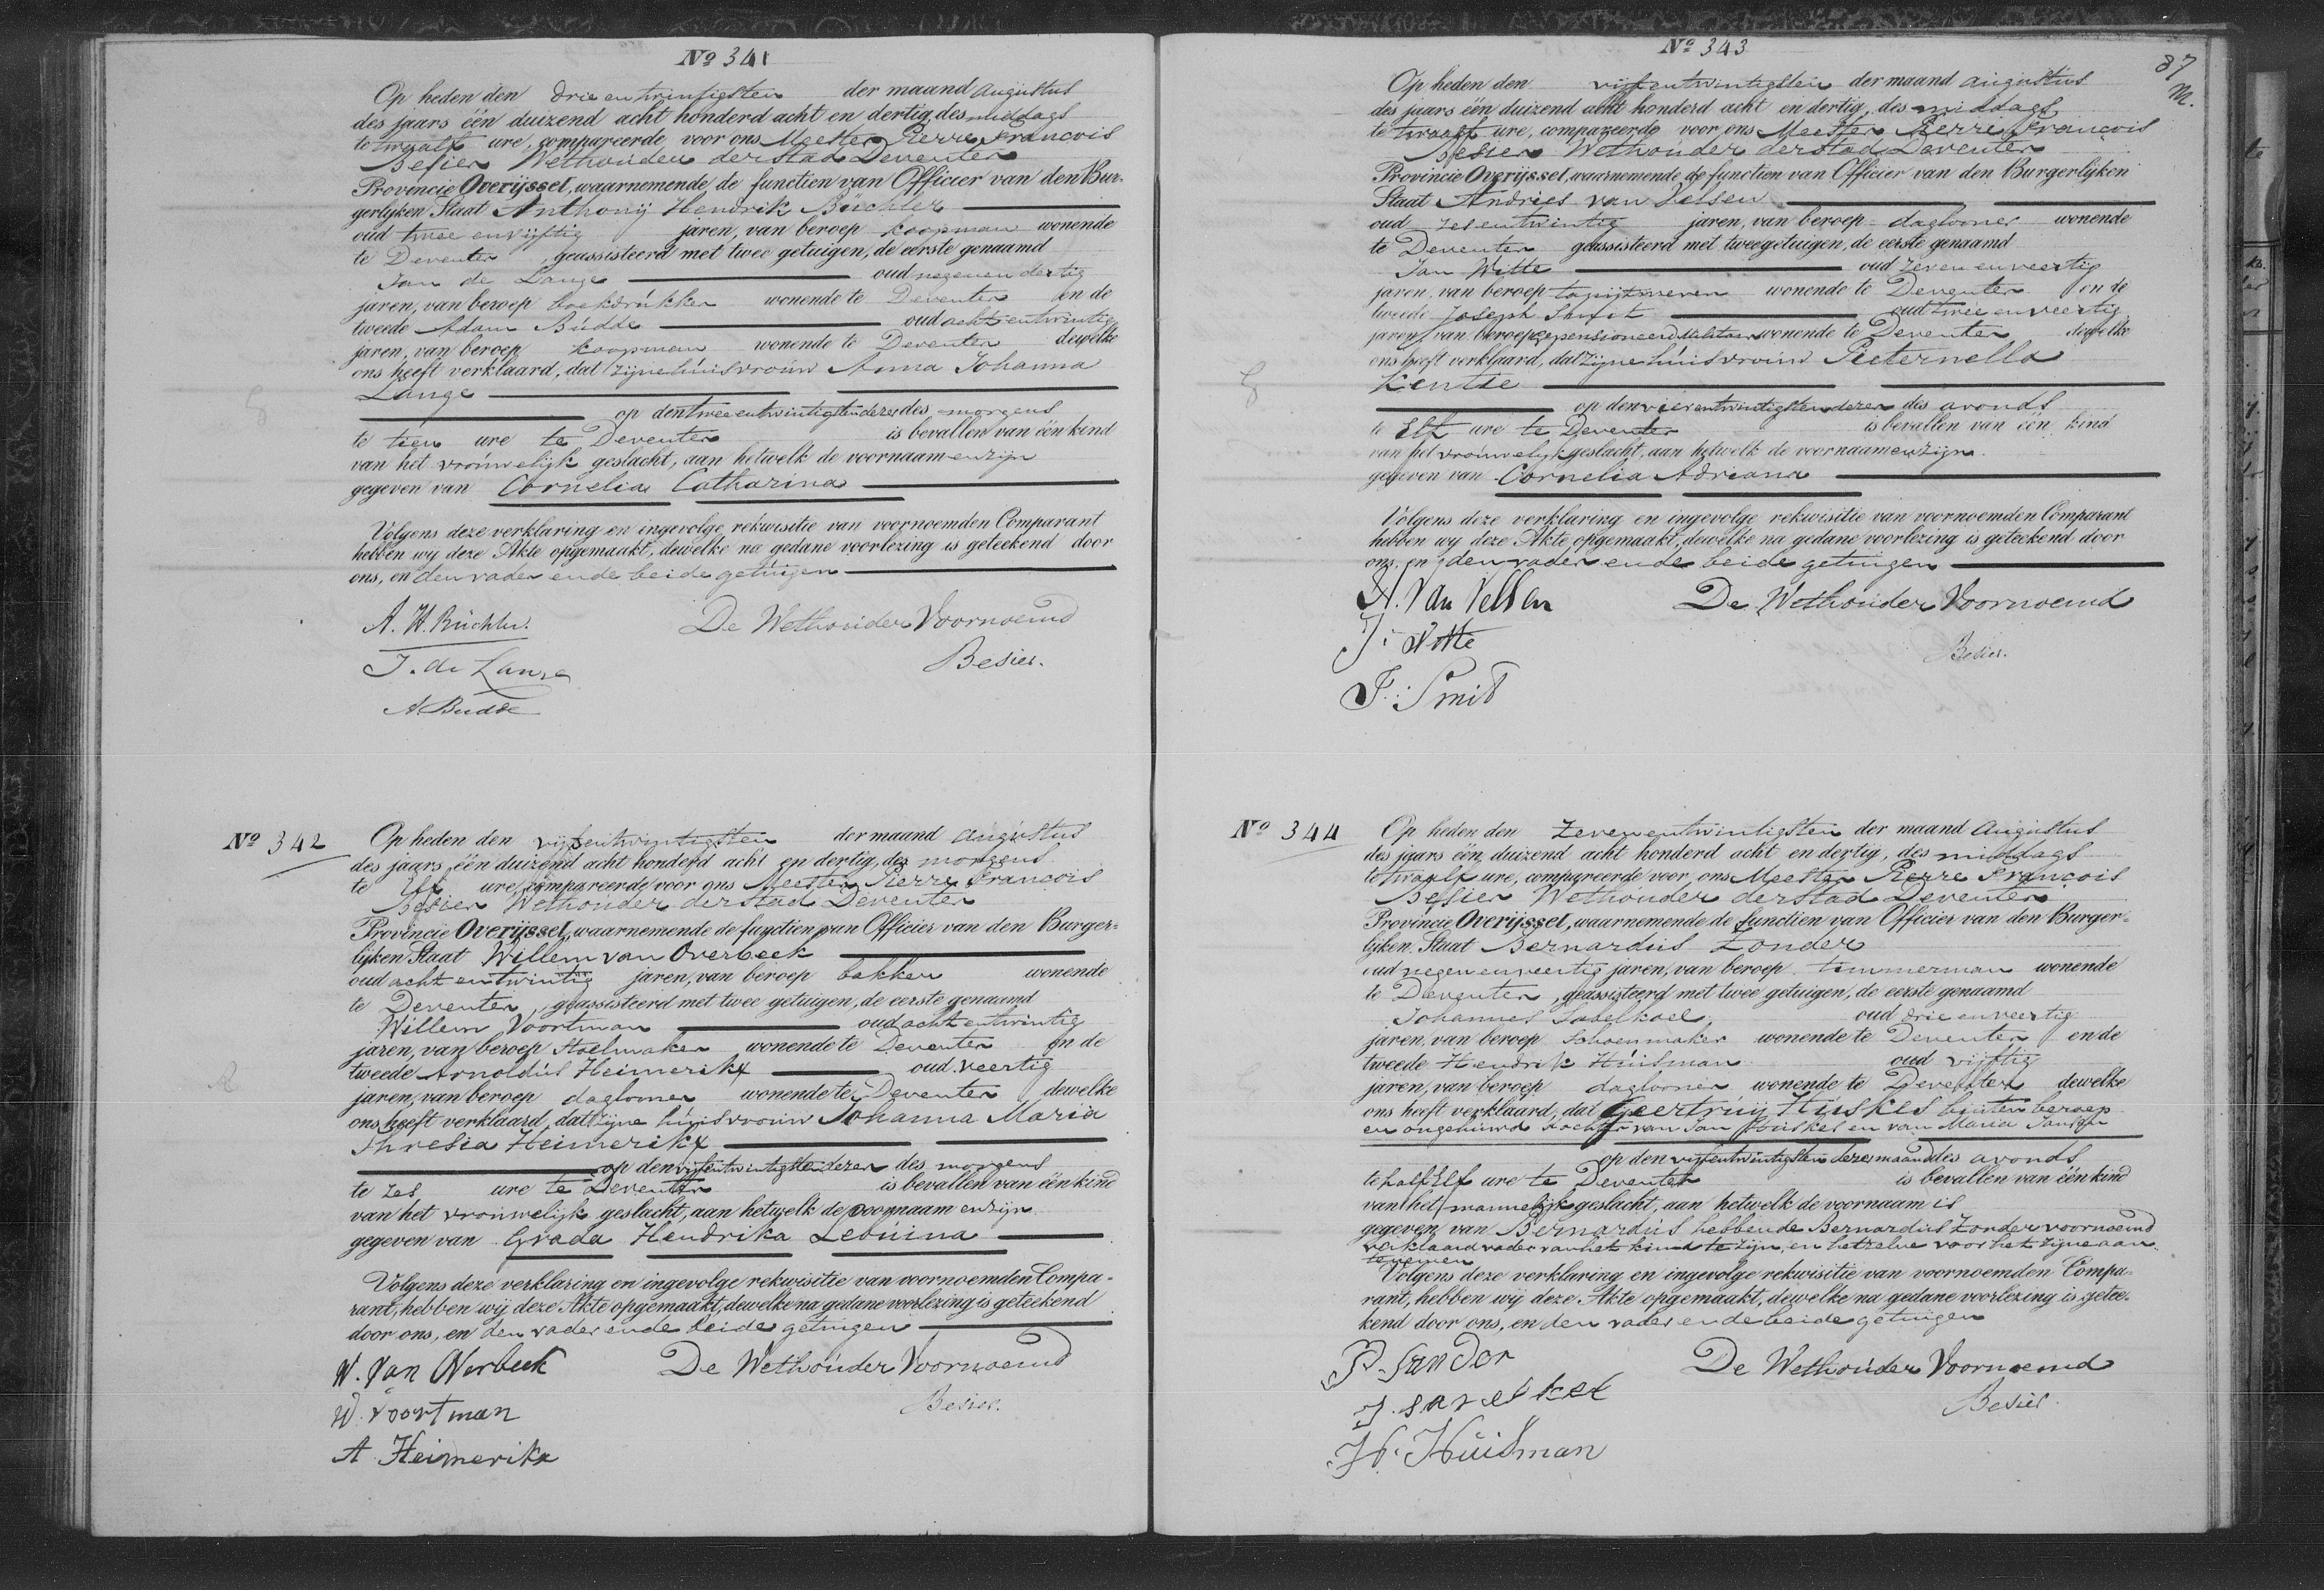 No 341
Op heden den drie en twintigsten der maand Augustus
des jaars één duizend acht honderd acht en dertig, des middags
te twaalf ure, compareerde voor ons Meester Pierre François
Besier Wethouder der Stad Deventer
Provincie Overijssel, waarnemende de functien van Officier van den Bur-
gerlyken Staat Anthonij Hendrik Büchler
oud twee en vijftig jaren, van beroep koopman wonende
te Deventer, geassisteerd met twee getuigen, de eerste genaamd
Jan de Lange oud negenendertig
jaren, van beroep boekdrukker wonende te Deventer en de
tweede Adam Budde oud acht entwintig
jaren, van beroep koopman wonende te Deventer dewelke
ons heeft verklaard, dat zijne huisvrouw Anna Johanna
Lange
op den tweeentwintigsten dezer des morgens
te tien ure te Deventer is bevallen van één kind
van het vrouwelijk geslacht, aan hetwelk de voornaamen zijn
gegeven van Cornelia Catharina
Volgens deze verklaring en ingevolge rekwisitie van voornoemden Comparant
hebben wy deze Akte opgemaakt, dewelke na gedane voorlezing is geteekend door
ons, en den vader en de beide getuigen
A. H. Büchler. De Wethouder Voornoemd
J. de Lange Besier.
A. Budde
No 342
Op heden den vijfentwintigsten der maand Augustus
des jaars één duizend acht honderd acht en dertig, des morgens
te Elf ure, compareerde voor ons Meester Pierre François
Besier Wethouder der Stad Deventer
Provincie Overijssel, waarnemende de functien van Officier van den Burger-
lijken Staat Willem van Overbeek
oud acht en twintig jaren, van beroep bakker wonende
te Deventer, geassisteerd met twee getuigen, de eerste genaamd
Willem Voortman oud acht entwintig
jaren, van beroep Stoelmaker wonende te Deventer en de
tweede Arnoldus Heimerikx oud veertig
jaren, van beroep daglooner wonende te Deventer dewelke
ons heeft verklaard, dat zijne huisvrouw Johanna Maria
Thresia Heimerikx
op den vijfentwintigsten dezer des morgens
te zes ure te Deventer is bevallen van één kind
van het vrouwelijk geslacht, aan hetwelk de voornaam en zijn
gegeven van Grada Hendrika Lebuina
Volgens deze verklaring en ingevolge rekwisitie van voornoemden Compa-
rant, hebben wij deze Akte opgemaakt, dewelke na gedane voorlezing is geteekend
door ons, en den vader en de beide getuigen
W. Van Overbeek De Wethouder Voornoemd
W. Voortman Besier.
A Heimerikx
No 343
87
Op heden den vijfentwintigsten der maand Augustus
des jaars één duizend acht honderd acht en dertig, des middags
te twaalf ure, compareerde voor ons Meester Pierre François
Besier Wethouder der Stad Deventer
Provincie Overijssel, waarnemende de functien van Officier van den Burgerlijken
Staat Andries van Velsen
oud zesentwintig jaren, van beroep daglooner wonende
te Deventer geassisteerd met twee getuigen, de eerste genaamd
Jan Witte oud zeven enveertig
jaren, van beroep tapijtwever wonende te Deventer en de
tweede Joseph Smit oud twee enveertig
jaren, van beroep gepensioneerd Militair wonende te Deventer dewelke
ons heeft verklaard, dat zijne huisvrouw Pieternella
Kentie
op den vierentwintigsten dezer des avonds
te Elf ure te Deventer is bevallen van één kind
van het vrouwelijk geslacht, aan hetwelk de voornaamen zijn
gegeven van Cornelia Adriana
Volgens deze verklaring en ingevolge rekwisitie van voornoemden Comparant
hebben wy deze Akte opgemaakt, dewelke na gedane voorlezing is geteekend door
ons, en den vader en de beide getuigen
A. Van Velsen De Wethouder Voornoemd
J: Witte Besier.
J: Smit
No 344
Op heden den Zevenentwintigsten der maand Augustus
des jaars één duizend acht honderd acht en dertig, des middags
te twaalf ure, compareerde voor ons Meester Pierre François
Besier Wethouder der Stad Deventer
Provincie Overijssel, waarnemende de functien van Officier van den Burger-
lijken Staat Bernardus Zonder
oud negenenveertig jaren, van beroep timmerman wonende
te Deventer, geassisteerd met twee getuigen, de eerste genaamd
Johannes Sabelkoel oud drie enveertig
jaren, van beroep Schoenmaker wonende te Deventer en de
tweede Hendrik Huisman oud vijftig
jaren, van beroep daglooner wonende te Deventer dewelke
ons heeft verklaard, dat Geertruij Huskes buiten beroep
en ongehuwd dochter van Jan Huiskes en van Maria Jansen
op den vijfentwintigsten dezer maand des avonds
te half Elf ure te Deventer is bevallen van één kind
van het mannelijk geslacht, aan hetwelk de voornaam is
gegeven van Bernardus hebbende Bernardus Zonder voornoemd
verklaard vader van het kind te zijn, en hetzelve voor het zijne aan
tenemen
Volgens deze verklaring en ingevolge rekwisitie van voornoemden Compa-
rant, hebben wij deze Akte opgemaakt, dewelke na gedane voorlezing is getee-
kend door ons, en den vader en de beide getuigen
De Wethouder Voornoemd
Besier.
H. Huisman